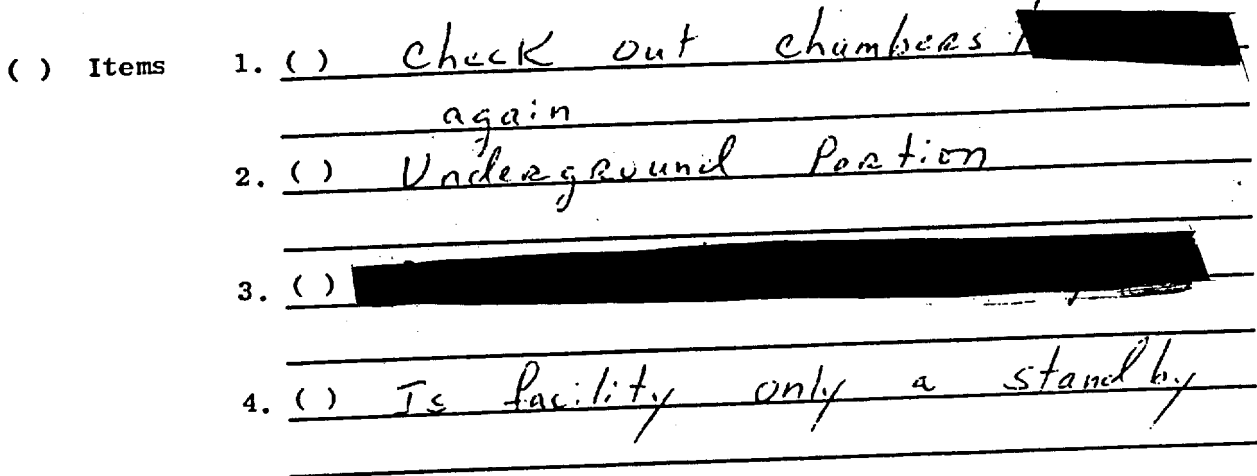 ( ) Items 1. ( ) Check out chambers
again
2. ( ) Underground Portion
3. ( )
4. ( ) Is facility only a standby